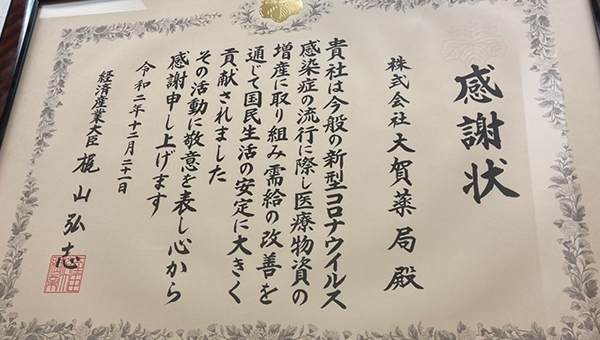 感謝状
株式会社大賀薬局殿
貴社は今般の新型コロナウイルス
感染症の流行に際し医療物資の
増産に取り組み需給の改善を
通じて国民生活の安定に大きく
貢献されました
その活動に敬意を表し心から
感謝申し上げます
令和二年十二月二十一日
経済産業大臣 梶山弘志